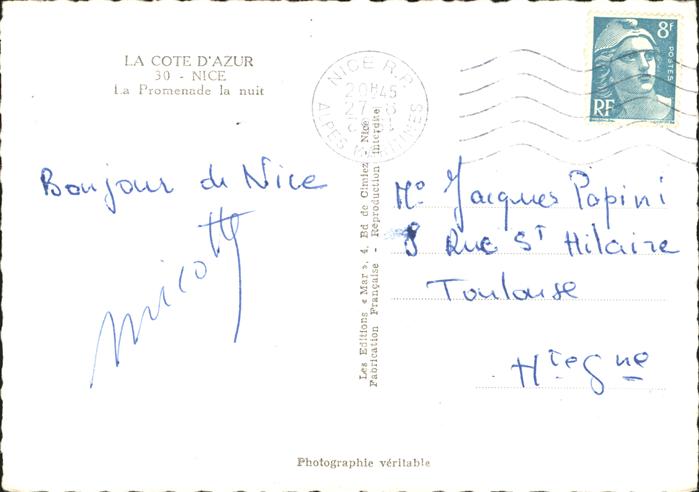 LA COTE D'AZUR
30 - NICE
La Promenade la nuit
NICE R.P.
20H45
27
ALPES MARITIMES
8F
POSTES
RF
Bonjour de Nice
Mr Jacques Papini
8 Rue St Hilaire
Toulouse
Hte Gne
Les Editions « Mar », 4, Bd de Cimiez - Nice
Fabrication Française - Reproduction interdite
Photographie véritable